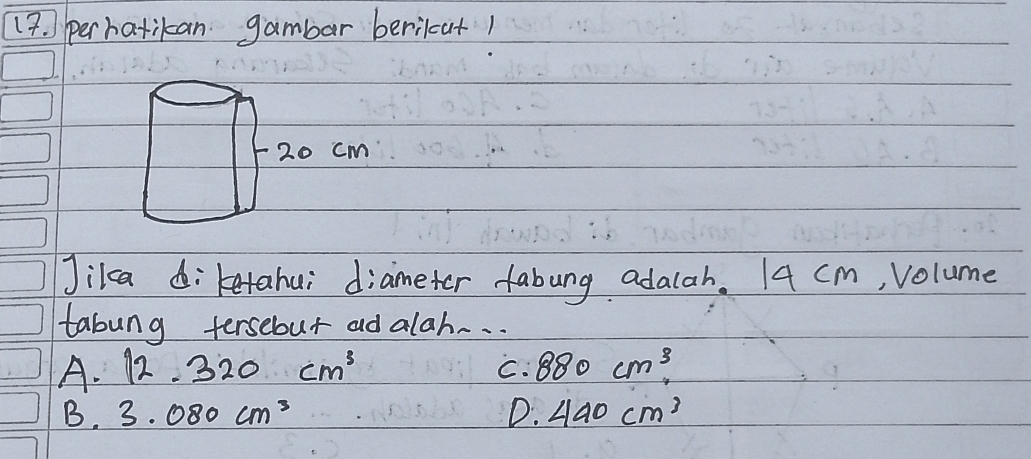 17. perhatikan gambar berikut!
20 cm
Jika diketahui diameter tabung adalah 14 cm, volume
tabung tersebut adalah....
A. 12.320 cm³ C. 880 cm³
B. 3.080 cm³ D. 440 cm³